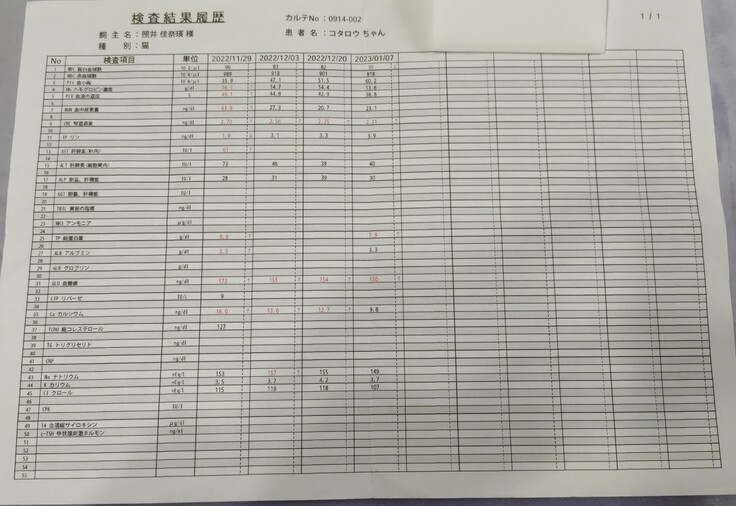 検査結果履歴
カルテNo : 0914-002
1 / 1
飼 主 名 : 照井 佳奈瑛 様
患 者 名 : コタロウ ちゃん
種 別 : 猫
No 検査項目 単位 2022/11/29 2022/12/03 2022/12/20 2023/01/07
1 99 83 82
2 989 918 901 818
3 35.9 47.1 51.5 60.2
4 Hb ヘモグロビン濃度 g/dl 16.1 ↑ 14.7 14.4 13.6
5 % 49.1 ↑ 44.8 42.9 38.8
6
7 BUN 血中尿素量 mg/dl 43.9 ↑ 27.3 20.7 23.1
8
9 mg/dl 2.70 ↑ 2.56 ↑ 2.25 ↑ 2.31 ↑
10
11 IP リン mg/dl 1.9 ↓ 3.1 3.3 3.9
12
13 IU/l 61 ↑
14
15 IU/l 73 46 39 40
16
17 IU/l 28 31 39 30
18
19 GGT 胆管、肝機能 IU/l
20
21 TBIL 黄疸の指標 mg/dl
22
23 NH3 アンモニア μg/dl
24
25 TP 総蛋白量 g/dl 8.9 ↑ 7.9 ↑
26
27 ALB アルブミン g/dl 3.7 ↑ 3.3
28
29 GLB グロブリン g/dl
30
31 GLU 血糖値 mg/dl 173 ↑ 155 ↑ 154 ↑ 180 ↑
32
33 LIP リパーゼ IU/L 9
34
35 Ca カルシウム mg/dl 16.0 ↑ 13.6 ↑ 12.7 ↑ 9.8
36
37 TCHO 総コレステロール mg/dl 127
38
39 TG トリグリセリド mg/dl
40
41 CRP mg/dl
42
43 Na ナトリウム mEq/L 153 157 ↑ 155 149
44 K カリウム mEq/L 3.5 3.7 4.2 3.7
45 Cl クロール mEq/L 115 118 118 107
46
47 CPK IU/l
48
49 T4 血清総サイロキシン μg/dl
50 c-TSH 甲状腺刺激ホルモン ng/ml
51
52
53
54
55